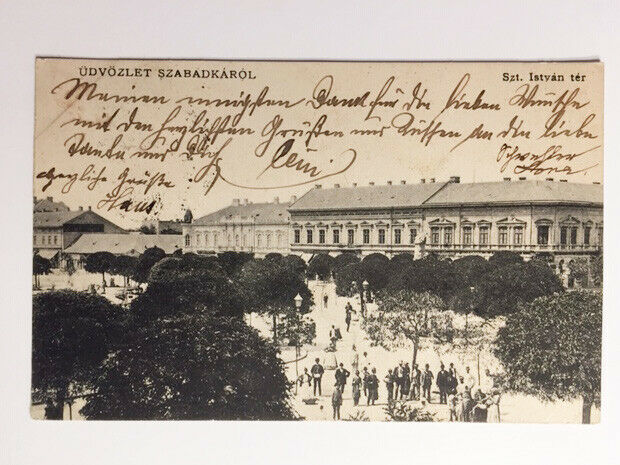 ÜDVÖZLET SZABADKÁRÓL
Szt. István tér
Meinen innigsten Dank für die lieben Wünsche
mit den herzlichsten Grüßen und Küssen an die liebe
Tante und Dich
Schwester
herzliche Grüße
Hans